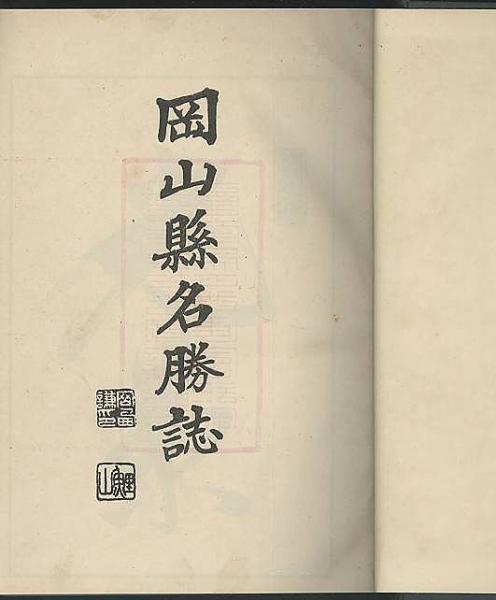 岡山縣名勝誌